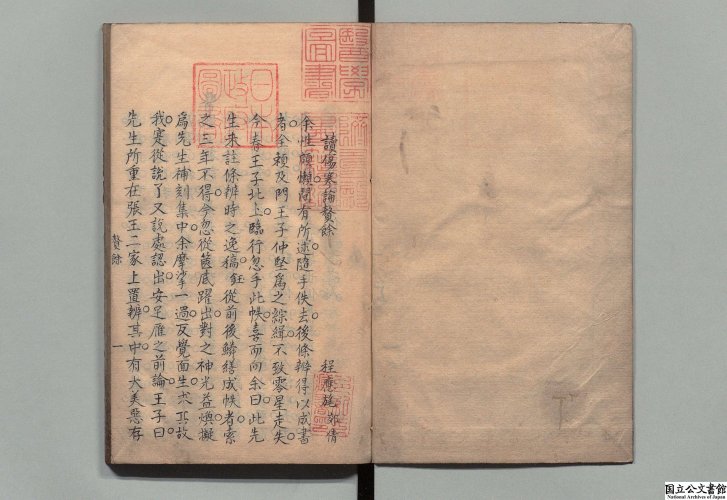 讀傷寒論贅餘
程應旄郊倩
余性踈懶間有所述隨手佚去後條辨得以成書
者全頼及門王子仲堅爲之綜緝不致零星走失
今春王子北上臨行忽手此帙喜而向余曰此先
生來註條辨時之逸稿鈺從前後歸繕成帙者索
之三年不得今忽從篋底躍出對之神光益煥擬
爲先生補刻集中余摩挲一過反覺面生求其故
我寔從說了又說處認出安足雁之前論王子曰
先生所重在張王二家上置辨其中有大美惡存
贅餘
一
日本
政府
圖書
國立公文書館
National Archives of Japan